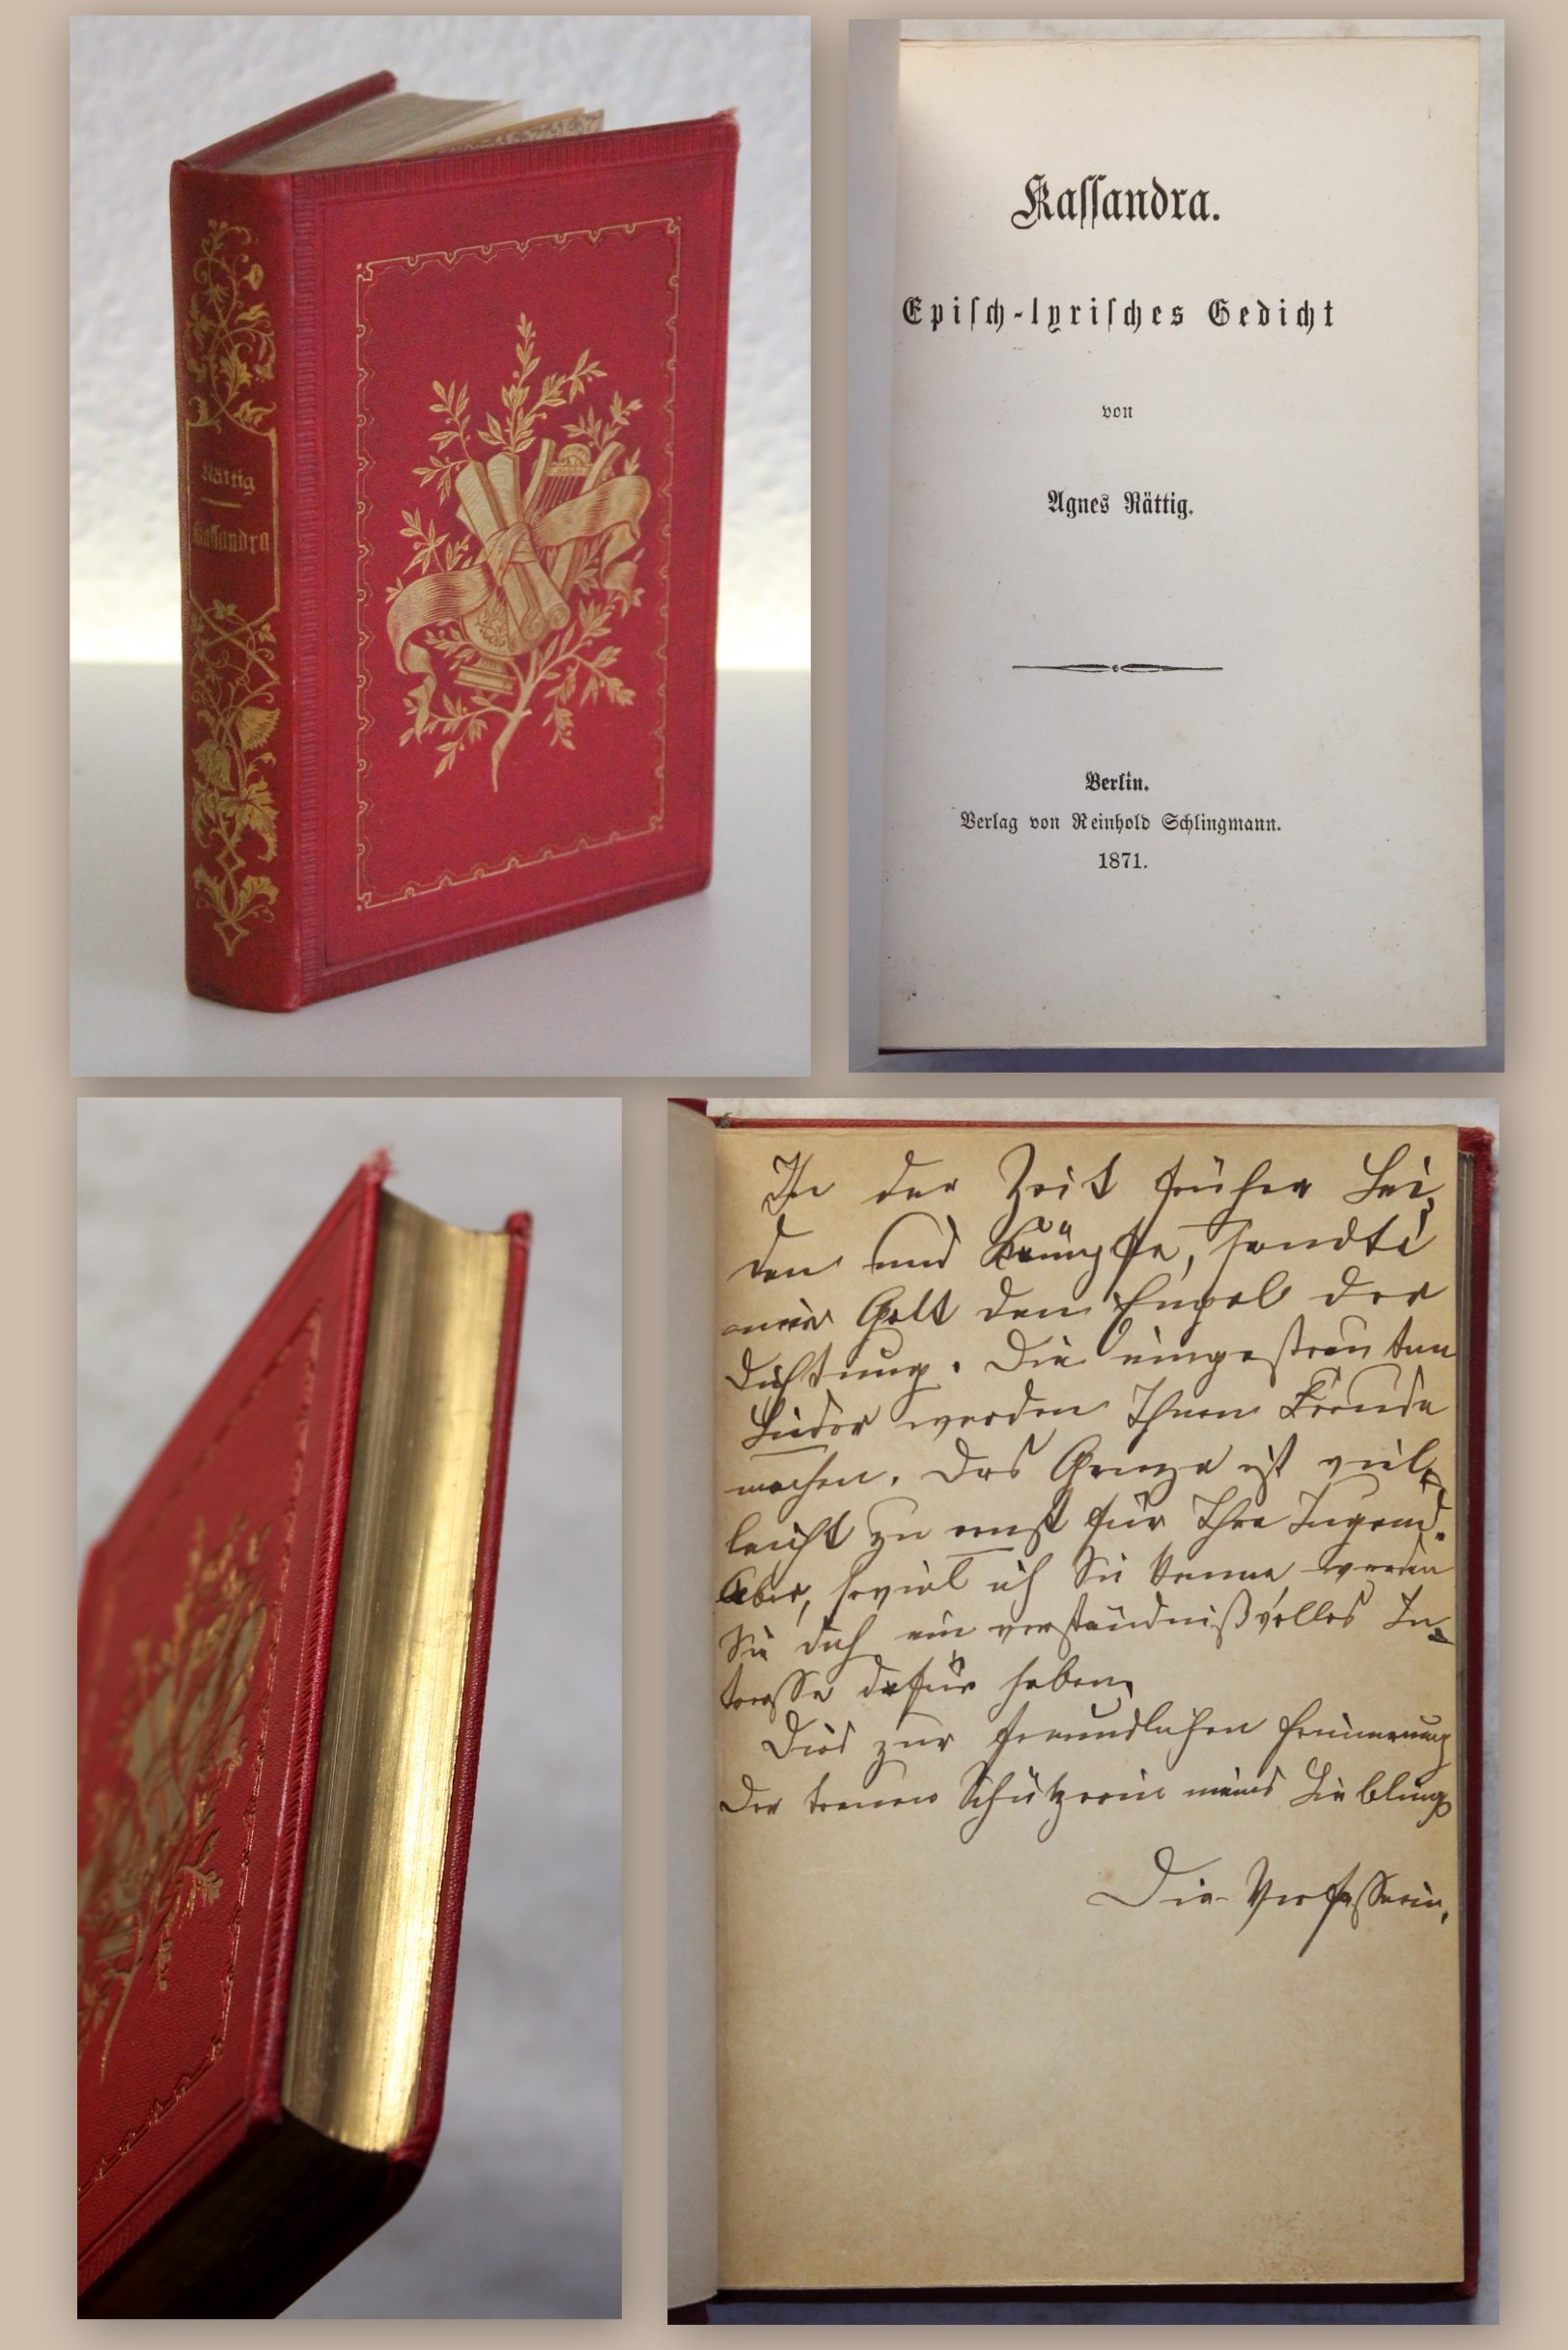 Rättig
Kassandra
Kaſſandra.
Epiſch-lyriſches Gedicht
von
Agnes Rättig.
Berlin.
Verlag von Reinhold Schlingmann.
1871.
In der Zeit früher Lei-
den und Kämpfe, sandte
mir Gott den Engel der
Dichtung. Die eingestreuten
Lieder werden Ihnen Freude
machen. Das Ganze ist viel-
leicht zu ernst für Ihre Jugend.
Aber, soviel ich Sie kenne, werden
Sie doch ein verständnißvolles In-
teresse dafür haben.
Dies zur freundlichen Erinnerung
Der treuen Schützerin meines Lieblings
Die Verfasserin.